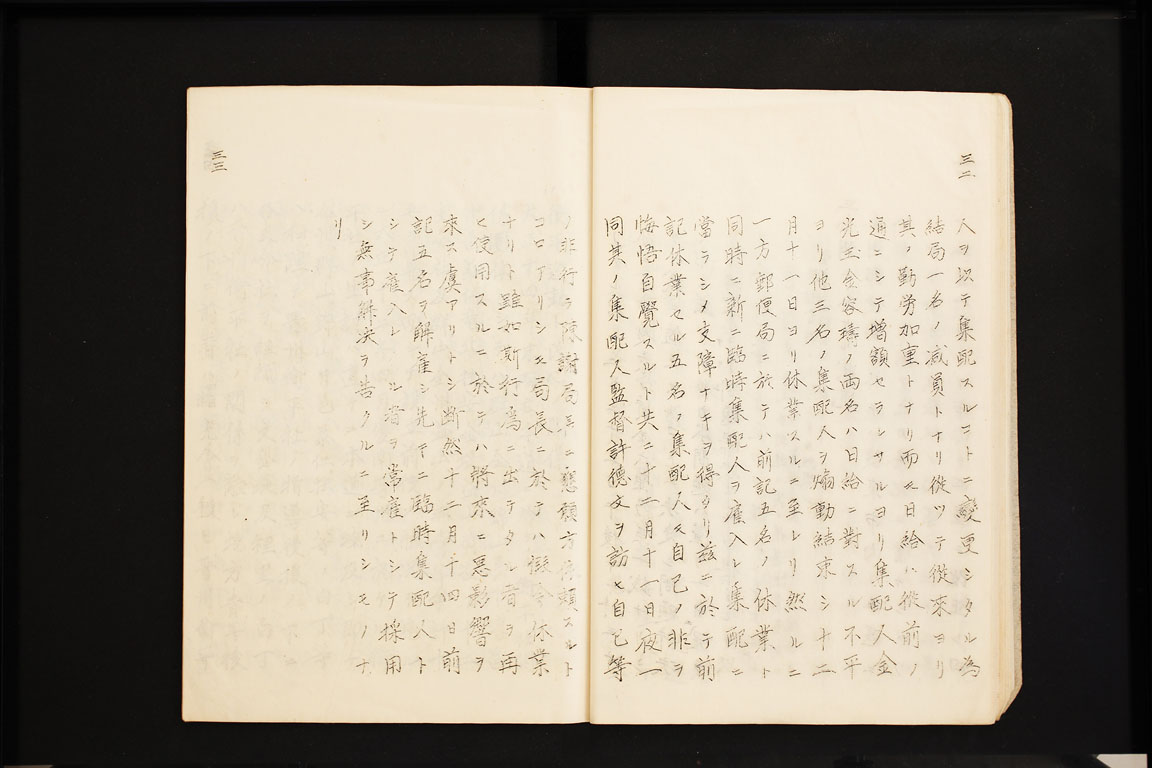 三二
人ヲ以テ集配スルコトニ變更シタル為
結局一名ノ減員トナリ從ツテ從來ヨリ
其ノ勤労加重トナリ而モ日給ハ從前ノ
通ニシテ増額セラレサルヨリ集配人金
兆玉金容琦ノ両名ハ日給ニ對スル不平
ヨリ他三名ノ集配人ヲ煽動結束シ十二
月十一日ヨリ休業スルニ至レリ然ルニ
一方郵便局ニ於テハ前記五名ノ休業ト
同時ニ新ニ臨時集配人ヲ雇入レ集配ニ
當ラシメ支障ナキヲ得タリ茲ニ於テ前
記休業セル五名ノ集配人ハ自己ノ非ヲ
悔悟自覺スルト共ニ十二月十一日夜一
同其ノ集配人監督許德文ヲ訪ヒ自己等
三三
ノ非行ヲ陳謝局長ニ懇願方依頼スルト
コロアリシモ局長ニ於テハ假令休業
ナリト雖如斯行為ニ出テタル者ヲ再
ヒ使用スルニ於テハ將來ニ惡影響ヲ
來ス虞アリトシ断然十二月十四日前
記五名ヲ解雇シ先キニ臨時集配人ト
シテ雇入レタル者ヲ常雇トシテ採用
シ無事解決ヲ告クルニ至リシモノナ
リ